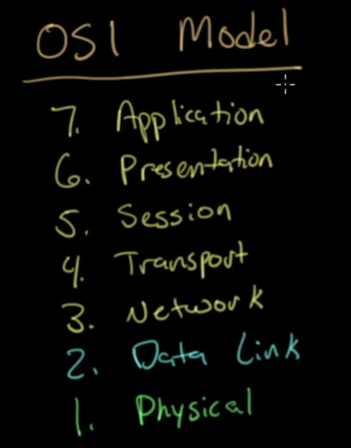 OSI Model
7. Application
6. Presentation
5. Session
4. Transport
3. Network
2. Data Link
1. Physical